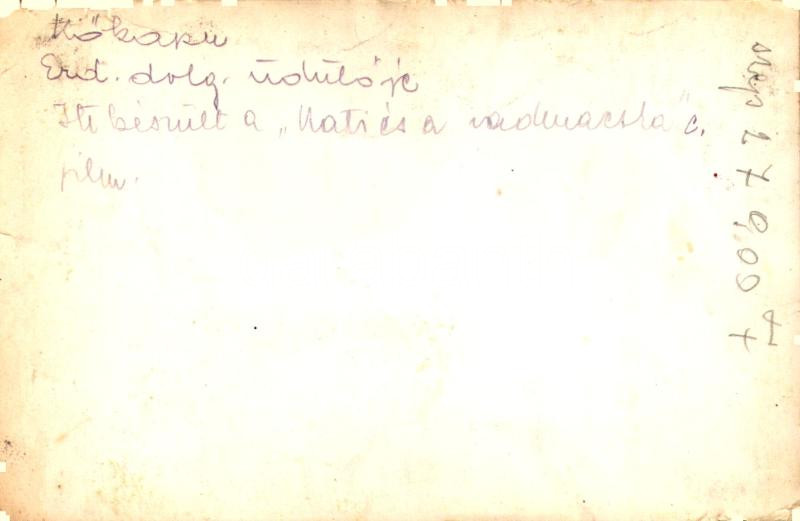 Kőkapu
Erd. dolg. üdülője
Itt készült a „Kati és a vadmacska" c.
film.